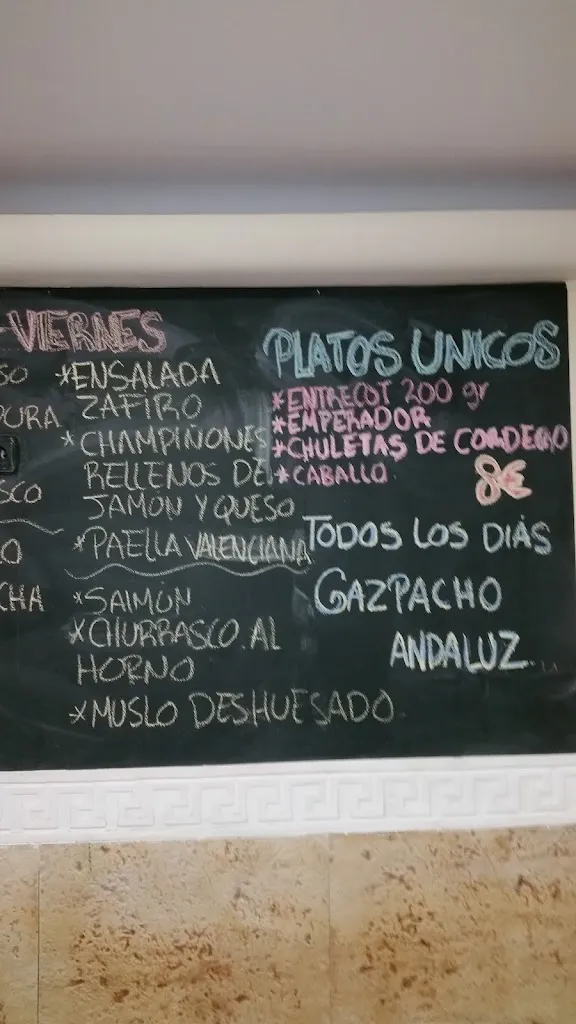 -VIERNES
SO
PURA
SCO
O
CHA
*ENSALADA
ZAFIRO
*CHAMPIÑONES
RELLENOS DE
JAMÓN Y QUESO
*PAELLA VALENCIANA
*SALMÓN
*CHURRASCO AL
HORNO
*MUSLO DESHUESADO.
PLATOS UNICOS
*ENTRECOT 200 gr
*EMPERADOR
*CHULETAS DE CORDERO
*CABALLO.
8€
TODOS LOS DIÁS
GAZPACHO
ANDALUZ...